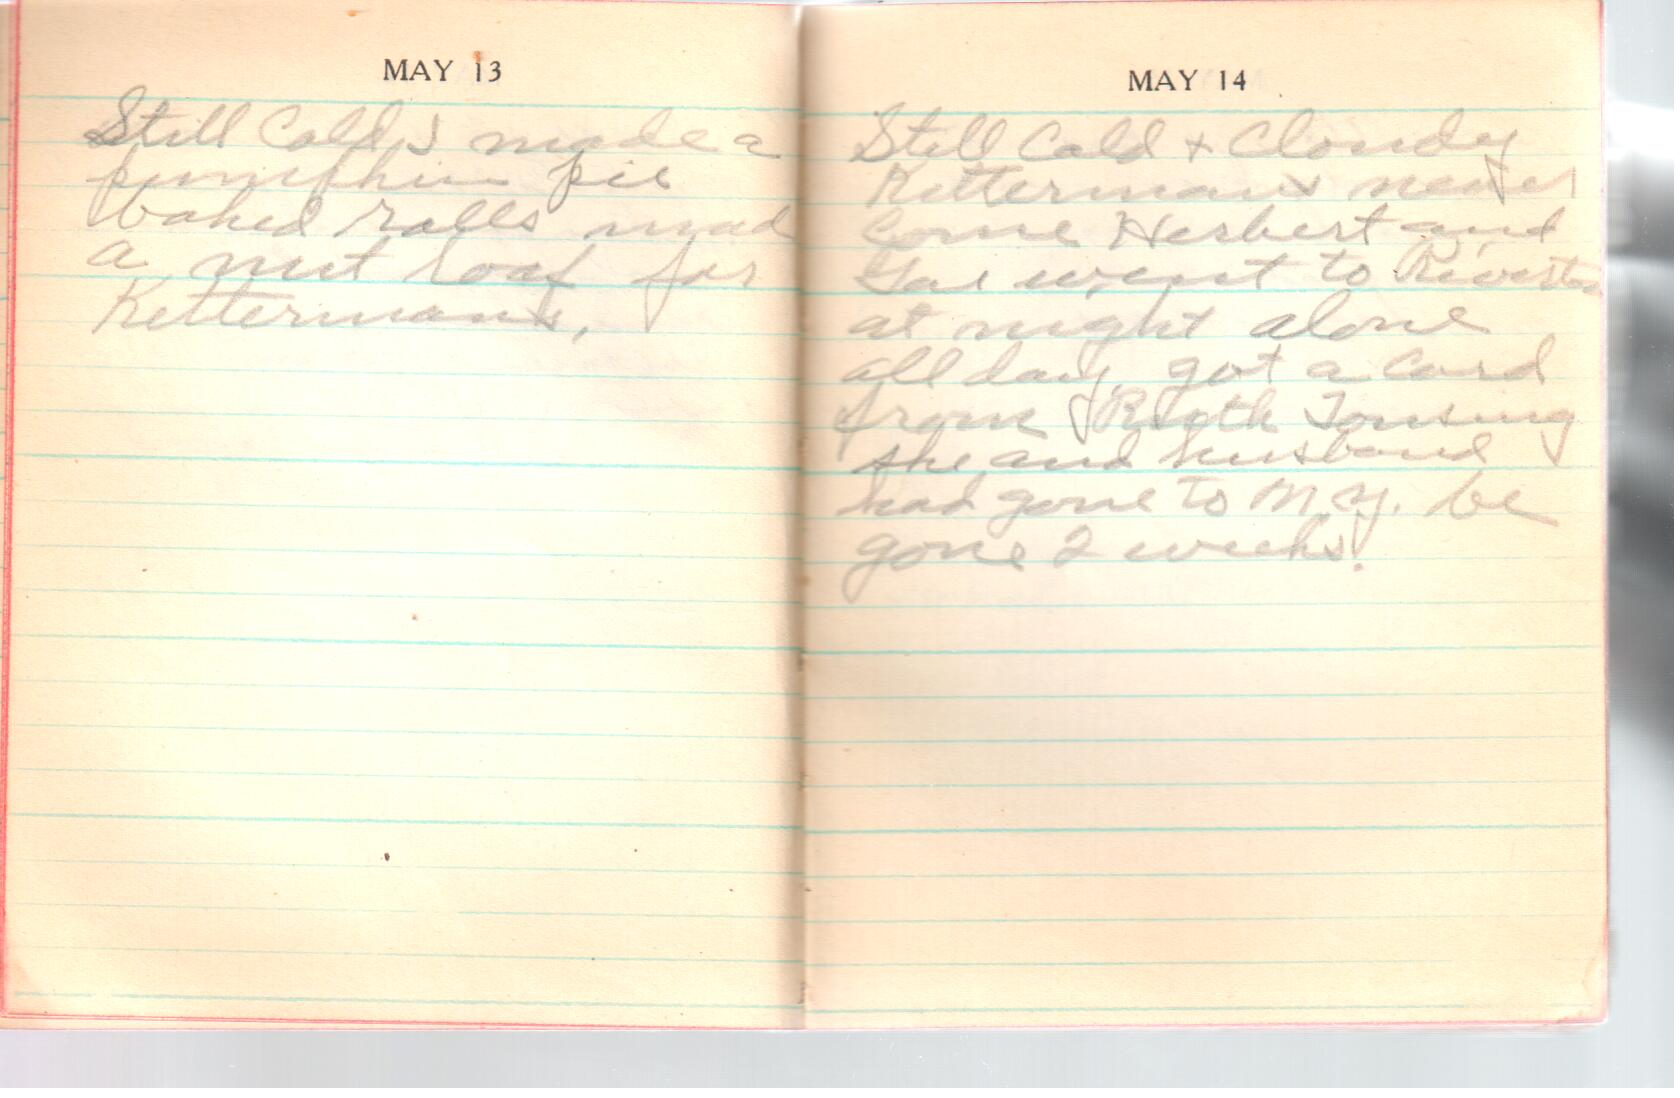 MAY 13
Still Cold I made a
pumpkin pie
baked rolls mad
a nut loaf for
Kettermans,
MAY 14
Still Cold & Cloudy
Kettermans never
Come Herbert and
went to Riverton
at night alone
all day got a Card
from Ruth Tonsing
she and husband
had gone to N.Y. be
gone 2 weeks.